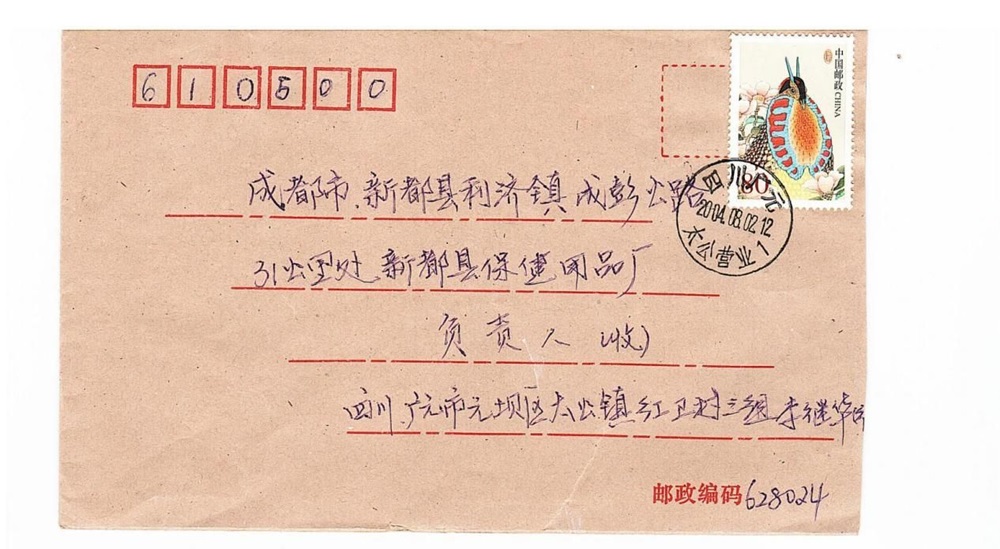 610500
中国邮政 CHINA
80
四川 元
2004.08.02.12
太公营业1
成都市、新都县利济镇成彭公路
31公里处新都县保健用品厂
负责人(收)
四川、广元市元坝区太公镇红卫村三组李继华
邮政编码628024